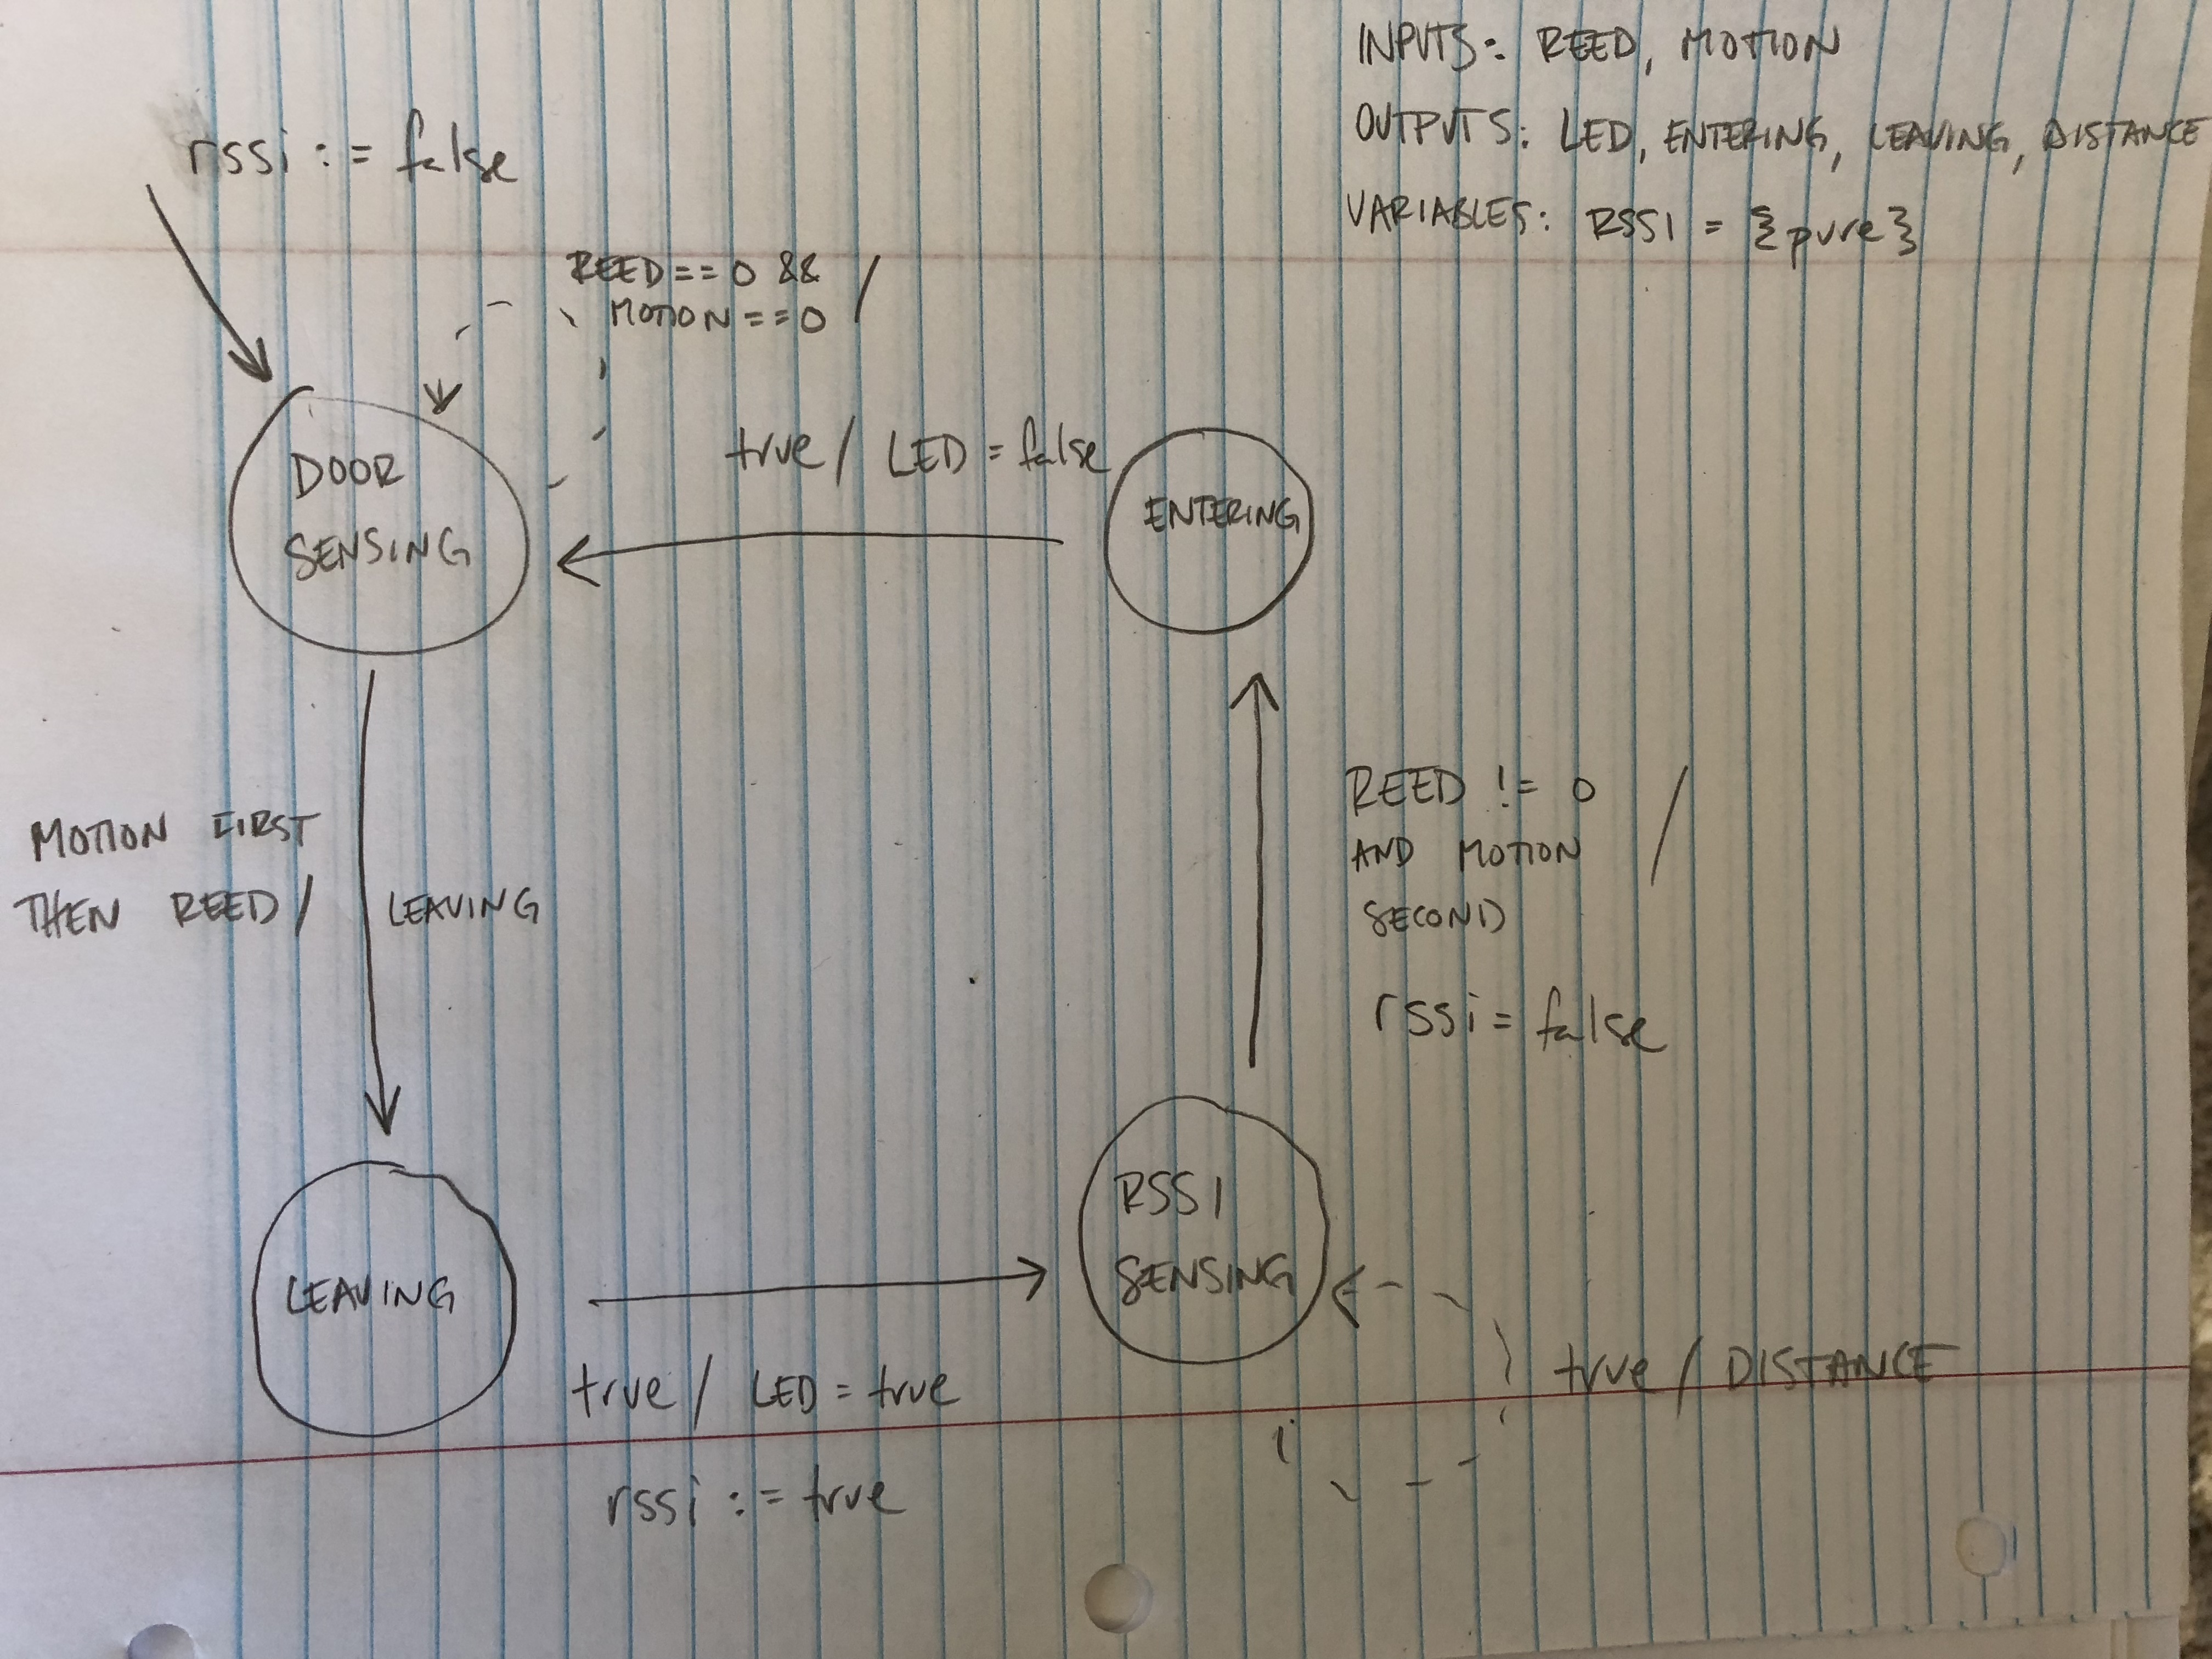 INPUTS: REED, MOTION
OUTPUTS: LED, ENTERING, LEAVING, DISTANCE
VARIABLES: RSSI = {pure}
rssi := false
REED == 0 && /
MOTION == 0
DOOR
SENSING
true / LED = false
ENTERING
MOTION FIRST
THEN REED / LEAVING
REED != 0 /
AND MOTION
SECOND
rssi = false
LEAVING
true / LED = true
rssi := true
RSSI
SENSING
true / DISTANCE